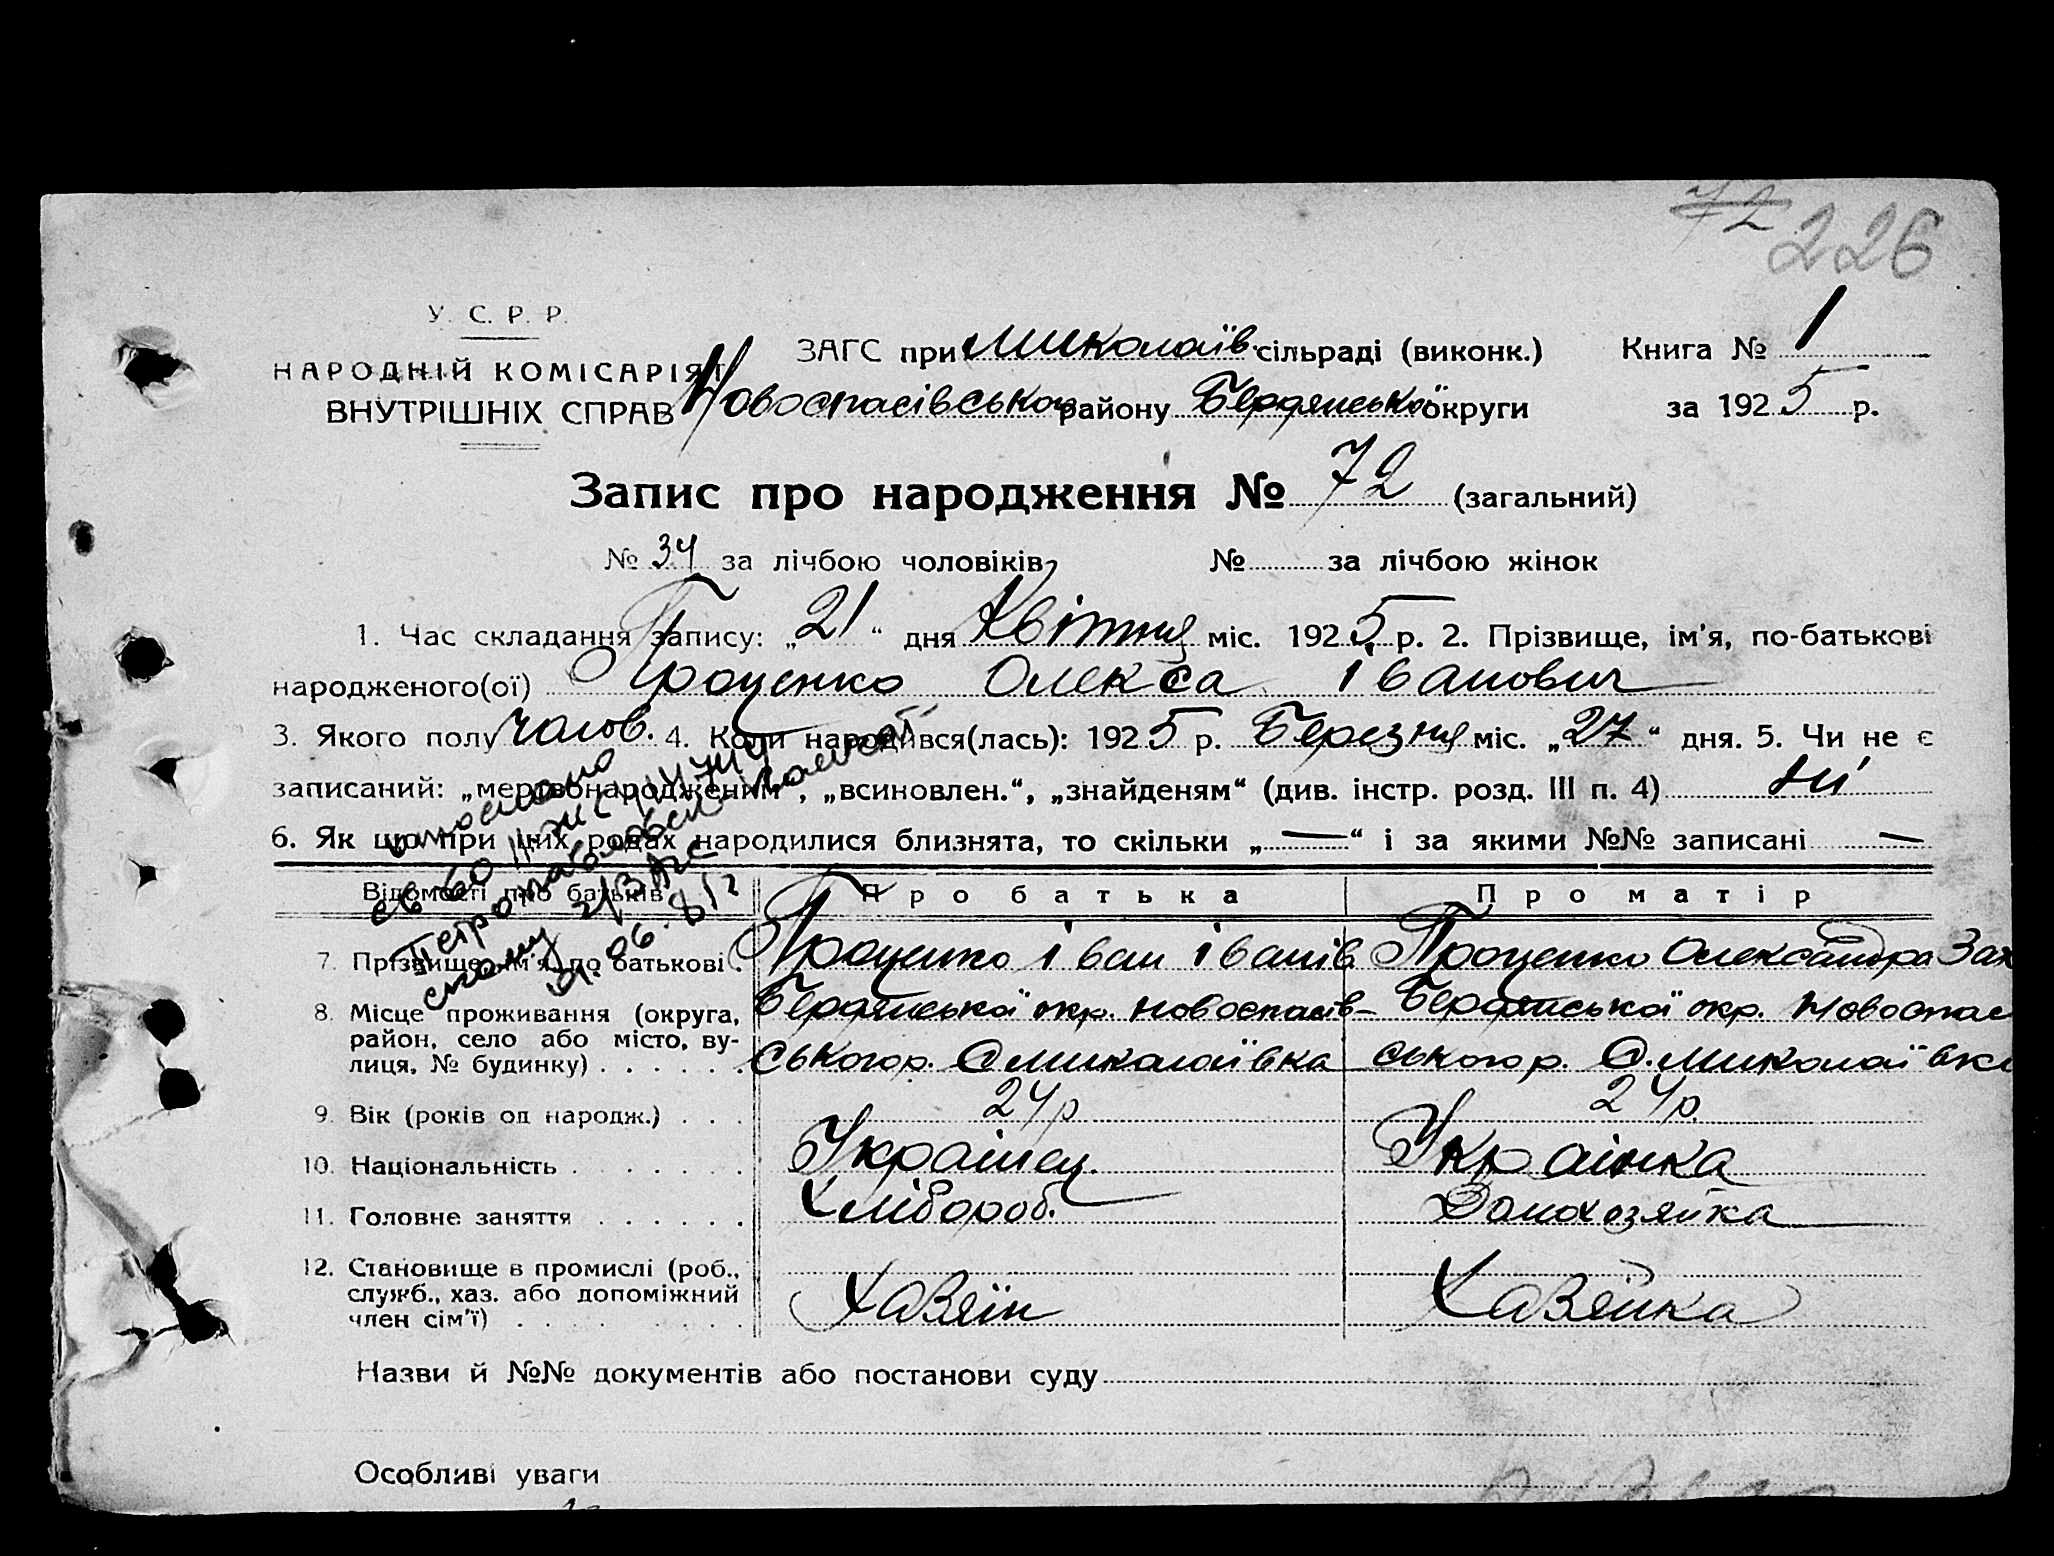 72 226
У. С. Р. Р.
НАРОДНІЙ КОМІСАРІЯТ
ВНУТРІШНІХ СПРАВ
ЗАГС при Миколаїв. сільраді (виконк.) Книга № 1
Новоспасівського району Бердянської округи за 1925 р.
Запис про народження № 72 (загальний)
№ 34 за лічбою чоловіків № за лічбою жінок
1. Час складання запису: „21“ дня Квітня міс. 1925 р. 2. Прізвище, ім'я, по-батькові
народженого(ої) Проценко Олекса Іванович
3. Якого полу чолов. 4. Коли народився(лась): 1925 р. Березня міс. „27“ дня. 5. Чи не є
записаний: „мертвонародженим“, „всиновлен.“, „знайденям“ (див. інстр. розд. III п. 4) ні
6. Як що при цих родах народилися близнята, то скільки „—“ і за якими №№ записані —
Відомості про батьків Про батька Про матір
7. Прізвище, ім'я, по батькові . Проценко Іван Іванів Проценко Олександра Зах
8. Місце проживання (округа, Бердянської окр. Новоспасів- Бердянської окр. Новоспас
район, село або місто, ву-
лиця, № будинку) . . . . . . ського р. С Миколаївка ського р. С. Миколаївка
9. Вік (років од народж.) . . . 24 р 24 р.
10. Національність . . . . . . . Українец. Українка
11. Головне заняття . . . . . . Хлібороб. Домохозяйка
12. Становище в промислі (роб.,
служб., хаз. або допоміжний
член сім'ї) . . . . . . . . Хазяїн Хазяйка
Назви й №№ документів або постанови суду
Особливі уваги